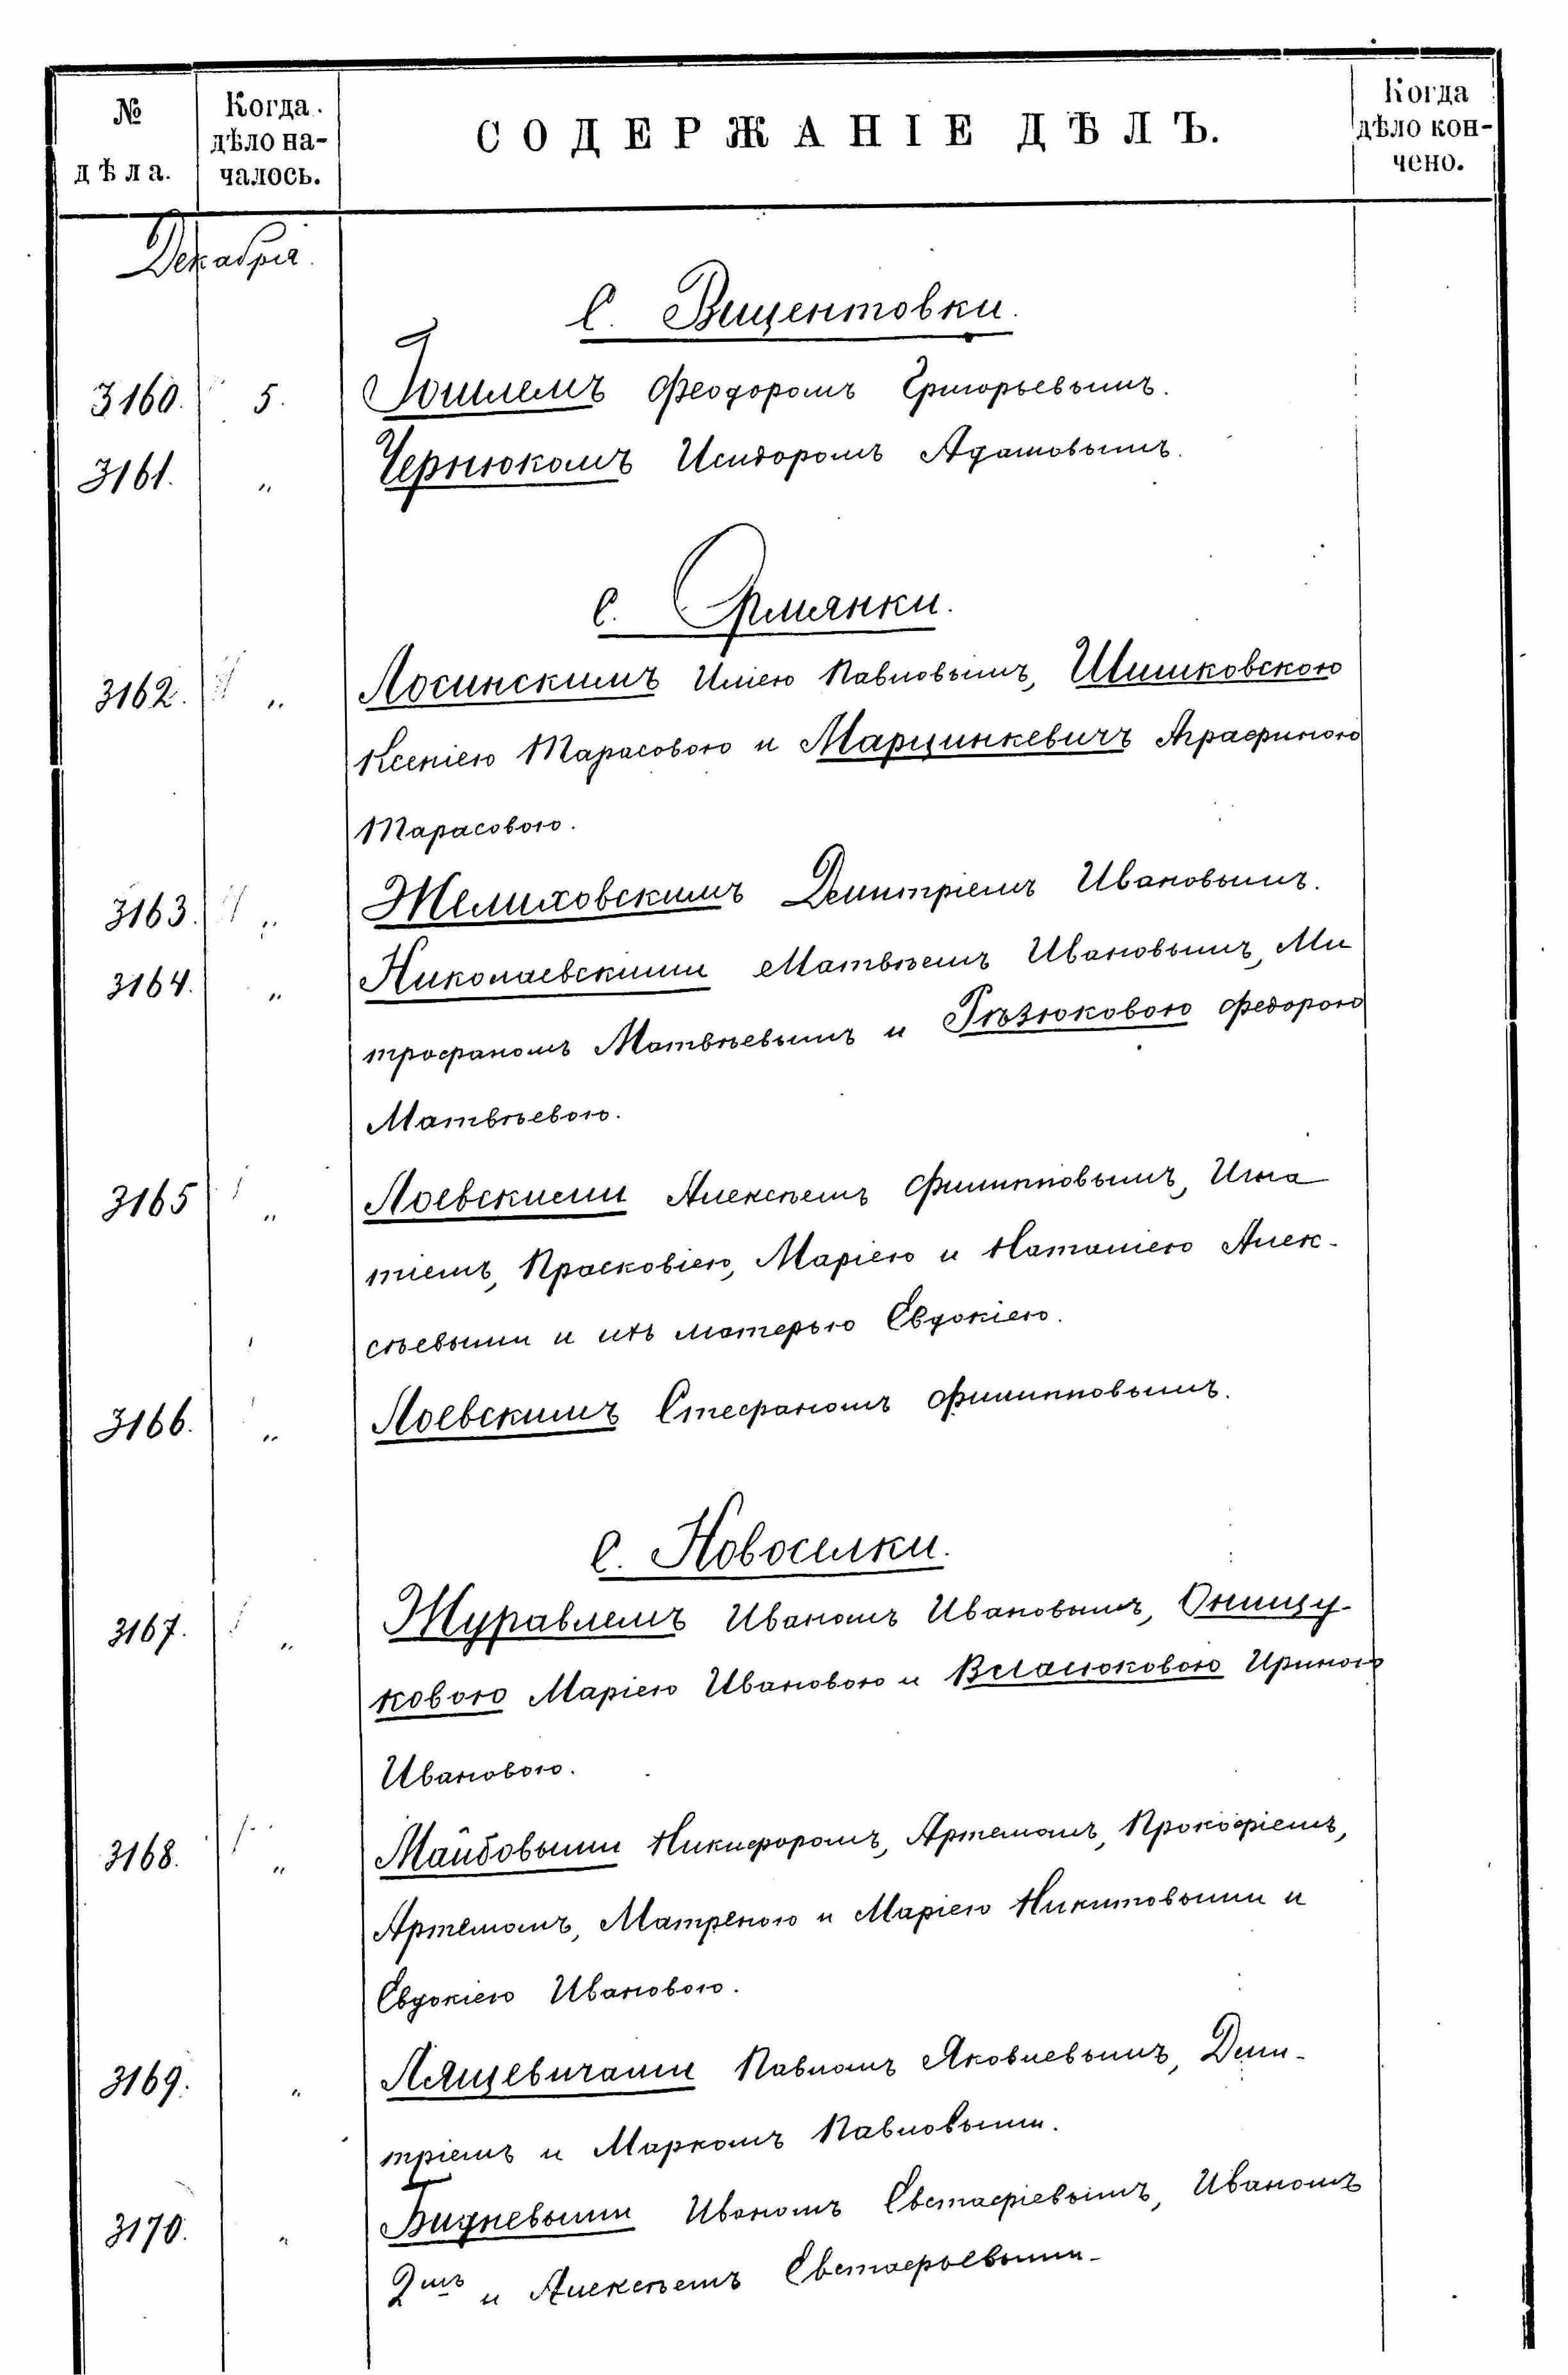 № дѣла.
Когда дѣло на-
чалось.
СОДЕРЖАНІЕ ДѢЛЪ.
Когда дѣло кон-
чено.
Декабря.
С. Вицентовки.
3160. 5. Гошлемъ Феодоромъ Григорьевымъ.
3161. „ Чернюкомъ Исидоромъ Адамовымъ.
с. Ормянки.
3162. „ Лосинскимъ Иліею Павловымъ, Шишковскою
Ксеніею Тарасовою и Марцинкевичъ Аграфиною
Тарасовою.
3163. „ Желиховскимъ Демитріемъ Ивановымъ.
3164. „ Николаевскими Матвѣемъ Ивановымъ, Ми
трофаномъ Матвѣевымъ и Гѣзюковою Федорою
Матвѣевою.
3165 „ Лоевскиеми Алексѣемъ Филипповымъ, Игна
тіемъ, Прасковіею, Маріею и Наталіею Алек-
сѣевыми и ихъ матерью Евдокіею.
3166. „ Лоевскимъ Стефаномъ Филипповымъ.
с. Новоселки.
3167. „ Журавлемъ Иваномъ Ивановымъ, Онищу-
ковою Маріею Ивановою и Власюковою Ириною
Ивановою.
3168. „ Майбовыми Никифоромъ, Артемомъ, Прокофіемъ,
Артемомъ, Матреною и Маріею Никитовыми и
Евдокіею Ивановою.
3169. „ Лящевичами Павломъ Яковлевымъ, Дми-
тріемъ и Маркомъ Павловыми.
3170. „ Бидневыми Иваномъ Евстафіевымъ, Иваномъ
2мъ и Алексѣемъ Евстафьевыми.